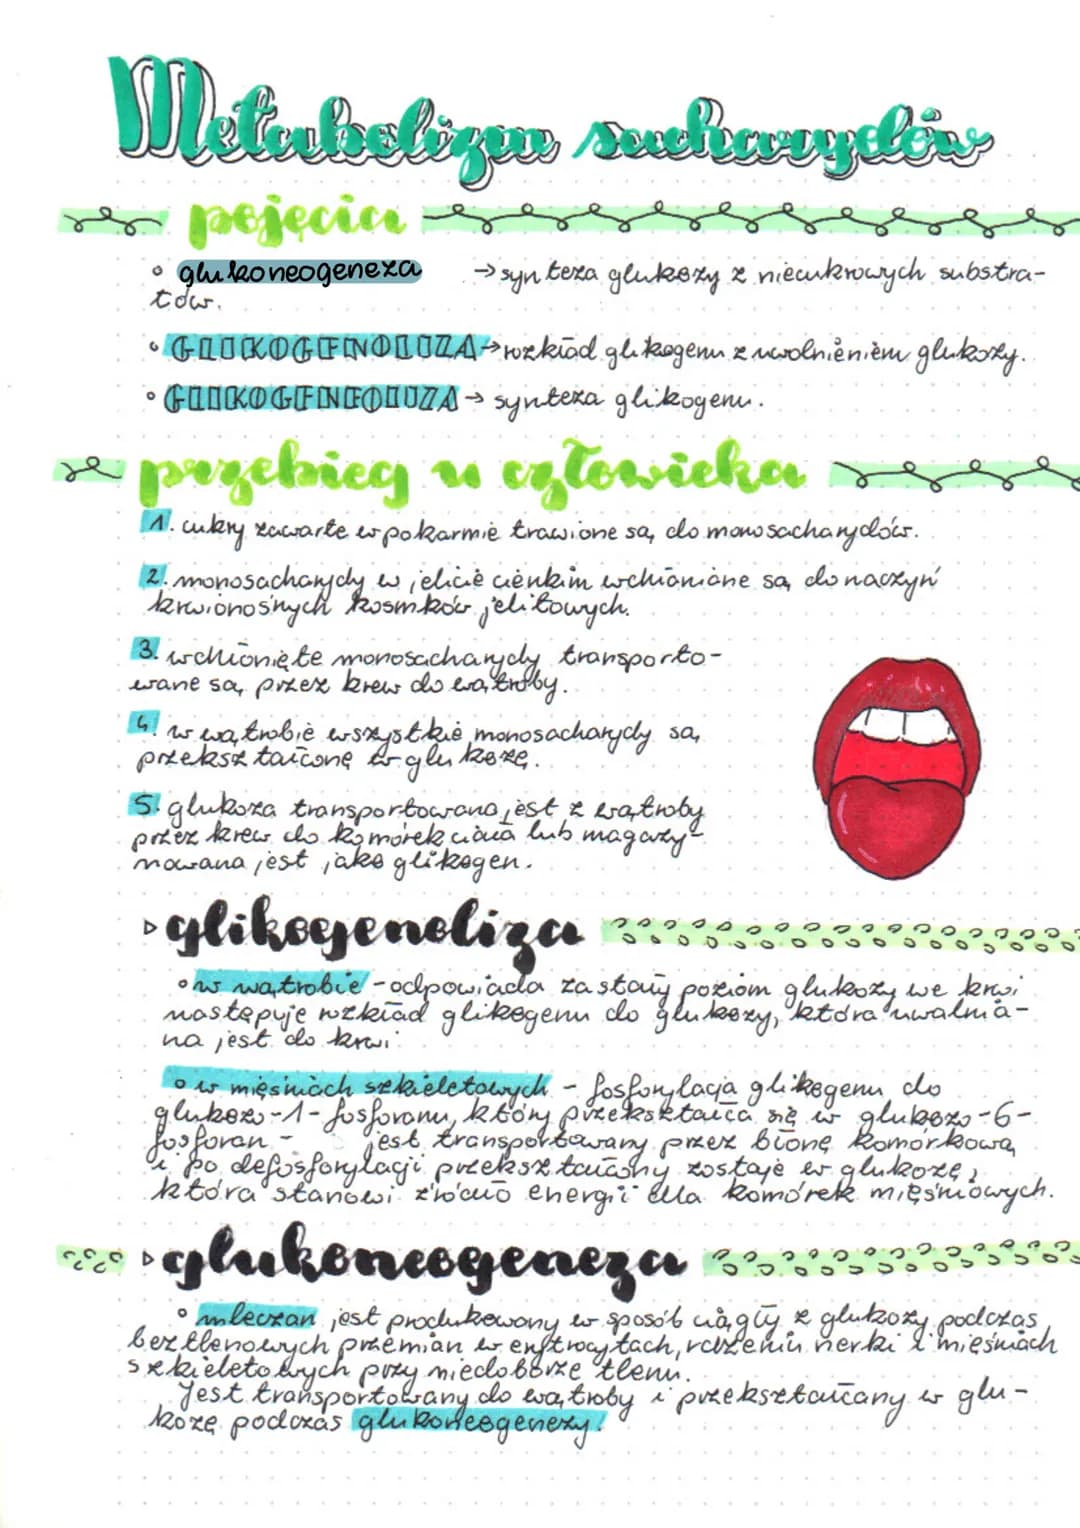 Metabolizm sacharydów
pojęcia
• glukoneogeneza → synteza glukozy z niecukrowych substra-
tów.
• GLIKOGENOLIZA → rozkład glikogenu z uwolnieniem glukozy.
• GLIKOGENEOLIZA → synteza glikogenu.
przebieg u człowieka
1. cukry zawarte w pokarmie trawione są do monosacharydów.
2. monosacharydy w jelicie cienkim wchłaniane są do naczyń
krwionośnych kosmków jelitowych.
3. wchłonięte monosacharydy transporto-
wane są przez krew do wątroby.
4. w wątrobie wszystkie monosacharydy są
przekształcone w glukozę.
5. glukoza transportowana jest z wątroby
przez krew do komórek ciała lub magazy-
nowana jest jako glikogen.
▹ glikogenoliza
• w wątrobie - odpowiada za stały poziom glukozy we krwi
następuje rozkład glikogenu do glukozy, która uwalnia-
na jest do krwi
• w mięśniach szkieletowych - fosforylacja glikogenu do
glukozo-1-fosforanu, który przekształca się w glukozo-6-
fosforan - jest transportowany przez błonę komórkową
i po defosforylacji przekształcony zostaje w glukozę,
która stanowi źródło energii dla komórek mięśniowych.
▹ glukoneogeneza
• mleczan jest produkowany w sposób ciągły z glukozy podczas
beztlenowych przemian w erytrocytach, rdzeniu nerki i mięśniach
szkieletowych przy niedoborze tlenu.
Jest transportowany do wątroby i przekształcany w glu-
kozę podczas glukoneogenezy!